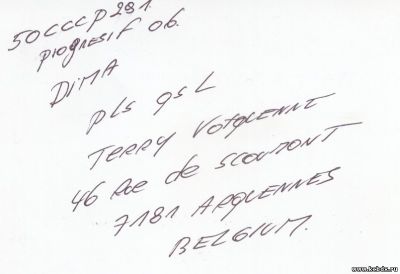 50CCCP291.
PROGRESIF 06.
DIMA
PLS QSL
TERRY VOTQUENNE
46 Rue de SCOUMONT
7181 ARQUENNES
BELGIUM.
www.kabdx.ru